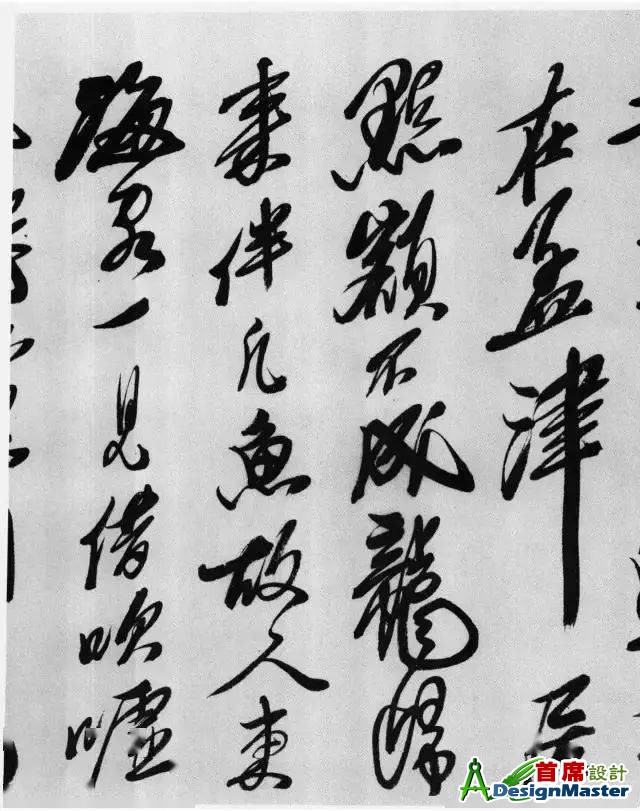 在孟津居
點額不成龍歸
來伴凡魚故人東
海客一見借吹噓
首席設計
ADesignMaster